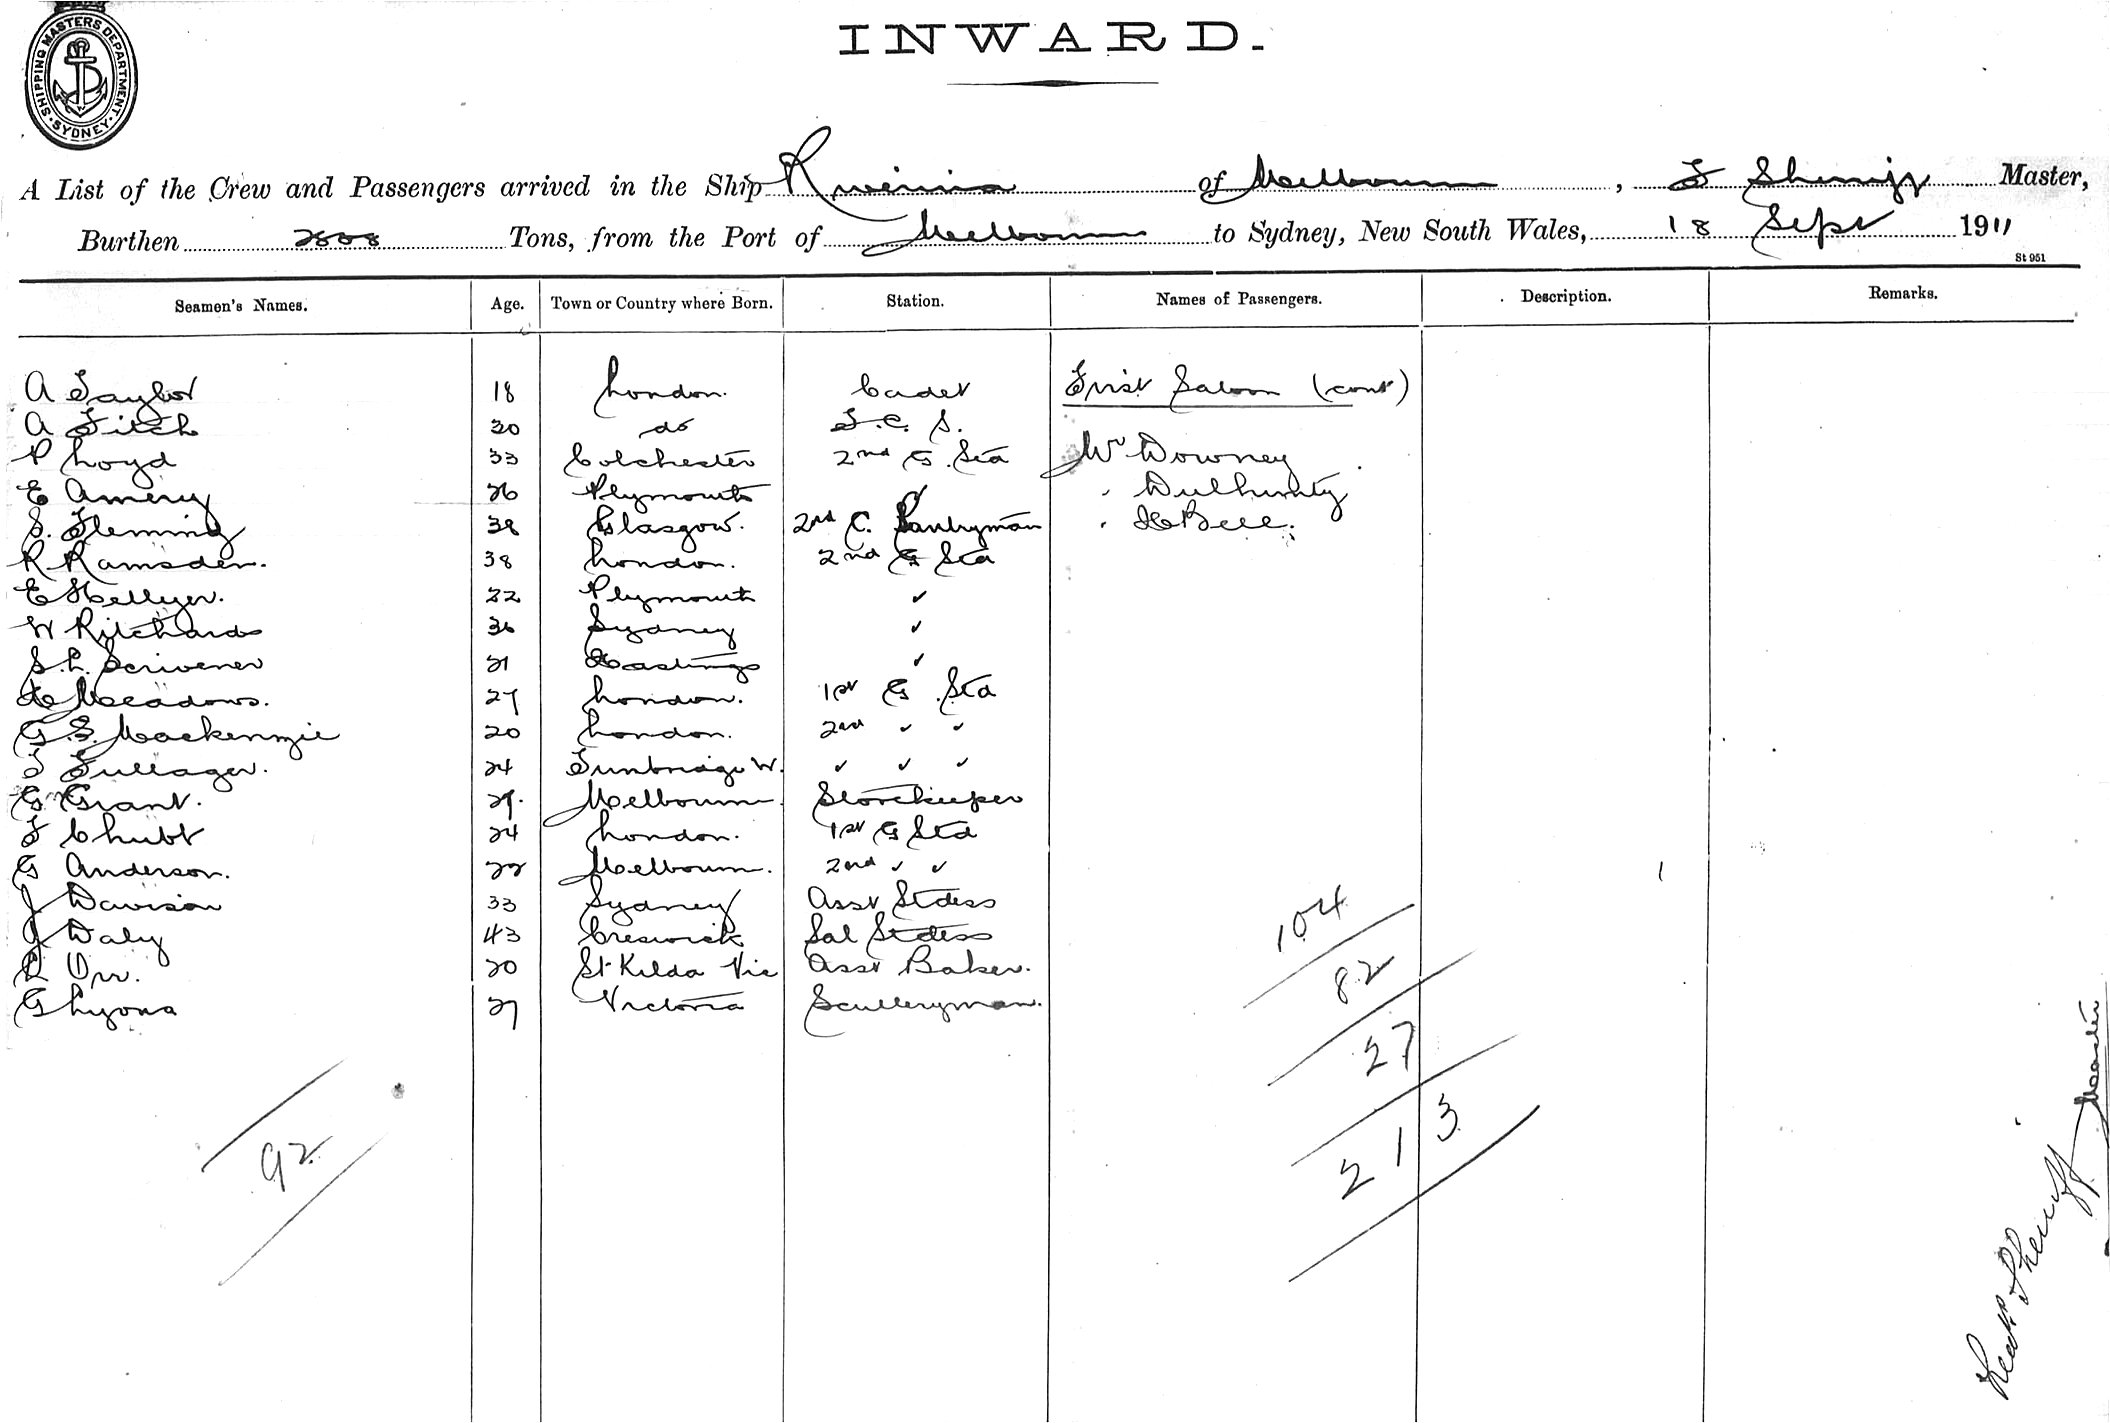 SHIPPING MASTERS DEPARTMENT. SYDNEY
INWARD.
A List of the Crew and Passengers arrived in the Ship of Melbourne, F Sherriff Master,
Burthen Tons, from the Port of Melbourne to Sydney, New South Wales, 18 Sept 1911
St 951
Seamen's Names. Age. Town or Country where Born. Station. Names of Passengers. Description. Remarks.
A Taylor 18 London. Cadet First Saloon (cont)
A Fitch 30 do F.C.S.
P Loyd 33 Colchester 2nd G. Std Mr Downey
E Amery 26 Plymouth " " Dulhunty
S. Fleming 38 Glasgow. 2nd C. Pantryman " H Bell.
R Ramsden. 38 London. 2nd G Std
E Hellyer. 22 Plymouth "
W Ritchards 36 Sydney "
S.L. Scrivener 21 Hastings "
H Meadows. 27 London. 1st G. Std
G.S. Mackenzie 20 London. 2nd " "
F Fullager. 24 Tunbridge W. " " "
G Grant. 29. Melbourne Storekeeper
F Chubb 24 London. 1st G Std
G Anderson. 22 Melbourne. 2nd " "
J Davison 33 Sydney Asst Stdess
J Daly 43 Creswick Sal Stdess
R Orr. 20 St Kilda Vic Asst Baker.
G Lyons 27 Victoria Sculleryman.
104
82
27
213
92
Sherriff Master